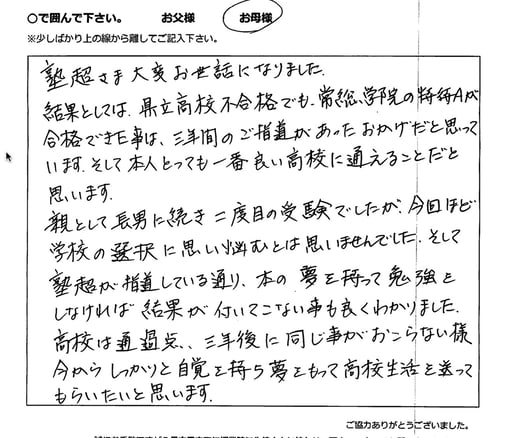 ○で囲んで下さい。 お父様 お母様
※少しばかり上の線から離してご記入下さい。
塾超さま大変お世話になりました.
結果としては、県立高校不合格でも、常総学院の特待Aが
合格できた事は、三年間のご指導があったおかげだと思って
います. そして本人とっても一番良い高校に通えることだと
思います.
親として長男に続き二度目の受験でしたが、今回ほど
学校の選択に思い悩むとは思いませんでした. そして
塾超が指導している通り、本の夢を持って勉強を
しなければ結果が付いてこない事も良くわかりました.
高校は通過点、、三年後に同じ事がおこらない様
今からしっかりと自覚を持ち夢をもって高校生活を送って
もらいたいと思います.
ご協力ありがとうございました。